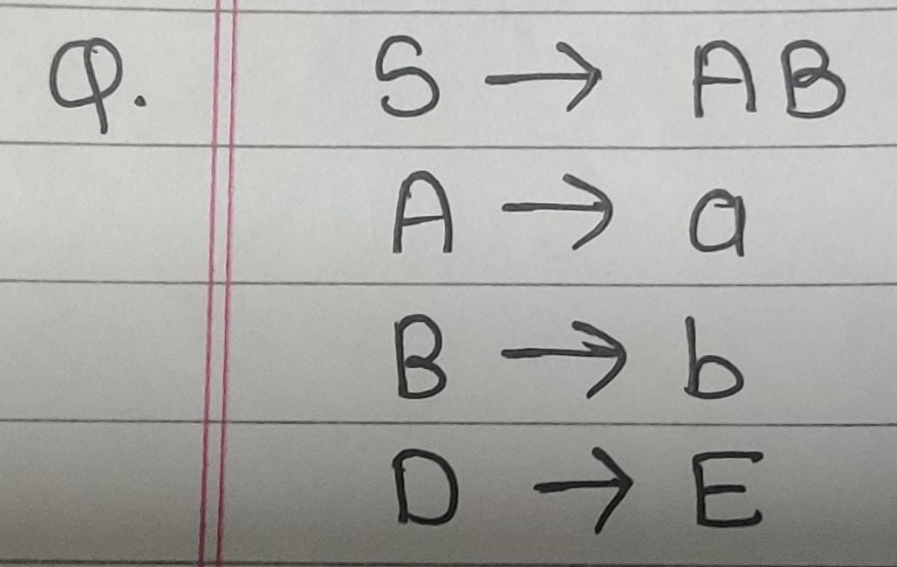 Q. S → AB
A → a
B → b
D → E